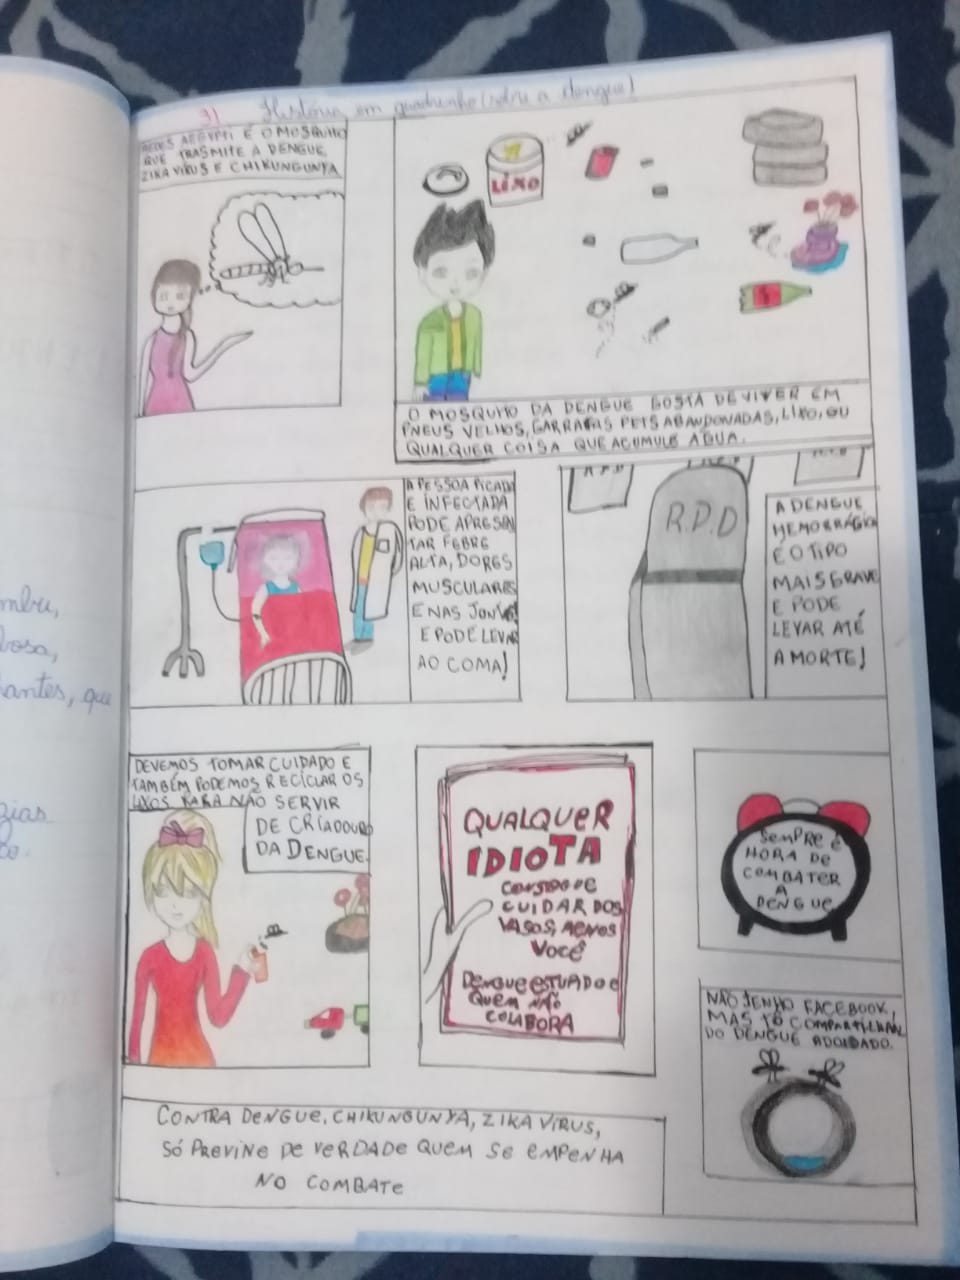 3) História em quadrinho (sobre a dengue)
AEDES AEGYPTI É O MOSQUITO
QUE TRASMITE A DENGUE,
ZIKA VÍRUS E CHIKUNGUNYA
LIXO
O MOSQUITO DA DENGUE GOSTA DE VIVER EM
PNEUS VELHOS, GARRAFAS PETS ABANDONADAS, LIXO, OU
QUALQUER COISA QUE ACUMULE ÁGUA.
A PESSOA PICADA
E INFECTADA
PODE APRESEN
TAR FEBRE
ALTA, DORES
MUSCULARES
E NAS JUNTAS
E PODE LEVAR
AO COMA!
R.P.D
R.P.D
A DENGUE
HEMORRÁGICA
É O TIPO
MAIS GRAVE
E PODE
LEVAR ATÉ
A MORTE!
DEVEMOS TOMAR CUIDADO E
TAMBÉM PODEMOS RECICLAR OS
LIXOS PARA NÃO SERVIR
DE CRIADOURO
DA DENGUE.
QUALQUER
IDIOTA
CONSEGUE
CUIDAR DOS
VASOS, MENOS
VOCÊ
QUEM NÃO
COLABORA
SEMPRE É
HORA DE
COMBATER
A
DENGUE
NÃO TENHO FACEBOOK,
MAS TÔ COMPARTILHAN
DO DENGUE ADOIDADO.
CONTRA DENGUE, CHIKUNGUNYA, ZIKA VÍRUS,
SÓ PREVINE DE VERDADE QUEM SE EMPENHA
NO COMBATE
mbu,
bosa,
tantes, que
zias
co.